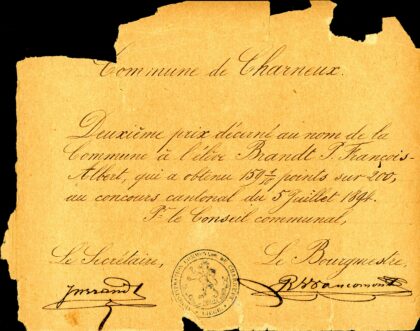 Commune de Charneux.
Deuxième prix décerné au nom de la
Commune à l'élève Brandt J. François-
Albert, qui a obtenu 159 points sur 200,
au concours cantonal du 5 Juillet 1894.
Pr le Conseil communal,
Le Secrétaire,
Le Bourgmestre,